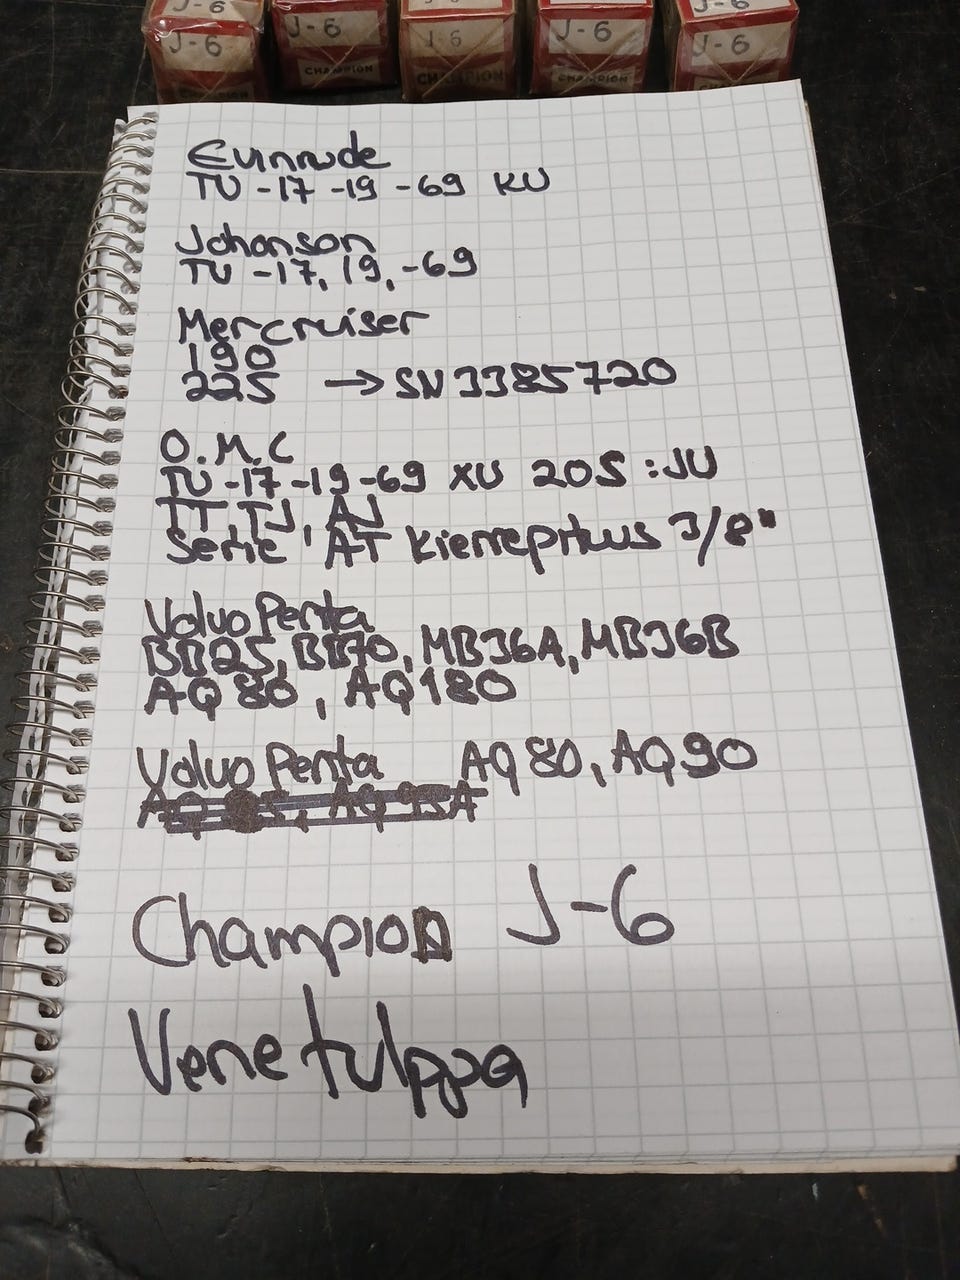 J-6
J-6
J-6
J-6
J-6
J-6
J-6
J-6
J-6
CHAMPION
CHAMPION
CHAMPION
CHAMPION
Evinrude
TU -17 -19 -69 KU
Johanson
TU -17, 19, -69
Mercruiser
190
225 → SN3385720
O.M.C
TU -17 -19 -69 XU 205 :JU
TT, TJ, AJ
Serie AT Kierrepituus 3/8"
Volvo Penta
BB25, BB70, MB36A, MB36B
AQ80, AQ180
Volvo Penta AQ80, AQ90
Champion J-6
Venetulppa